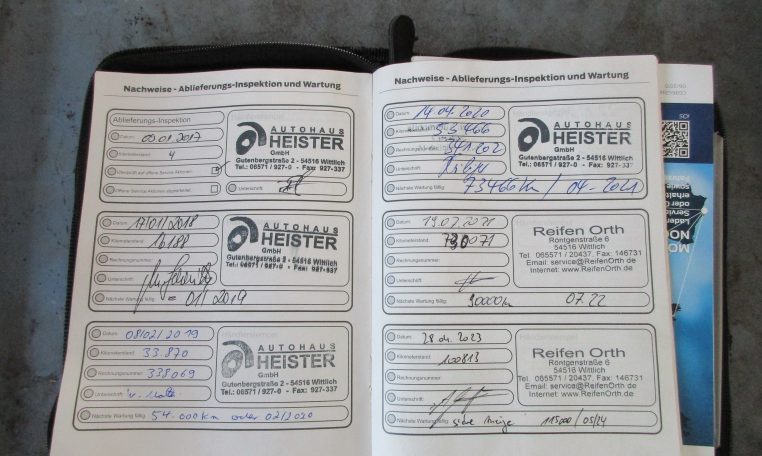 Nachweise - Ablieferungs-Inspektion und Wartung
Ablieferungs-Inspektion
Datum 09.01.2017
4
Unterschrift
AUTOHAUS
HEISTER
GmbH
Gutenbergstraße 2 - 54516 Wittlich
Tel.: 06571 / 927-0 - Fax: 927-337
Datum 17/01/2018
Kilometerstand
Rechnungsnummer
Unterschrift
Nächste Wartung fällig = 01/2019
AUTOHAUS
HEISTER
GmbH
Gutenbergstraße 2 - 54516 Wittlich
Tel.: 06571 / 927-0 - Fax: 927-337
Datum 08/02/2019
Kilometerstand 33.870
Rechnungsnummer 338069
Unterschrift
Nächste Wartung fällig 54.000km oder 02/2020
AUTOHAUS
HEISTER
GmbH
Gutenbergstraße 2 - 54516 Wittlich
Tel.: 06571 / 927-0 - Fax: 927-337
Nachweise - Ablieferungs-Inspektion und Wartung
Datum 14.04.2020
Kilometerstand 53466
Rechnungsnummer 341202
Nächste Wartung fällig 73466km / 04-2021
AUTOHAUS
HEISTER
GmbH
Gutenbergstraße 2 - 54516 Wittlich
Tel.: 06571 / 927-0 - Fax: 927-337
Datum 19.07.2021
Kilometerstand
Rechnungsnummer
Unterschrift
Nächste Wartung fällig 90000km 07.22
Reifen Orth
Röntgenstraße 6
54516 Wittlich
Tel. 065571 / 20437, Fax: 146731
Email: service@ReifenOrth.de
Internet: www.ReifenOrth.de
Datum 28.04.2023
Kilometerstand 100813
Rechnungsnummer
Unterschrift
Nächste Wartung fällig siehe Anzeige 115000 / 05/24
Reifen Orth
Röntgenstraße 6
54516 Wittlich
Tel. 065571 / 20437, Fax: 146731
Email: service@ReifenOrth.de
Internet: www.ReifenOrth.de
iOS